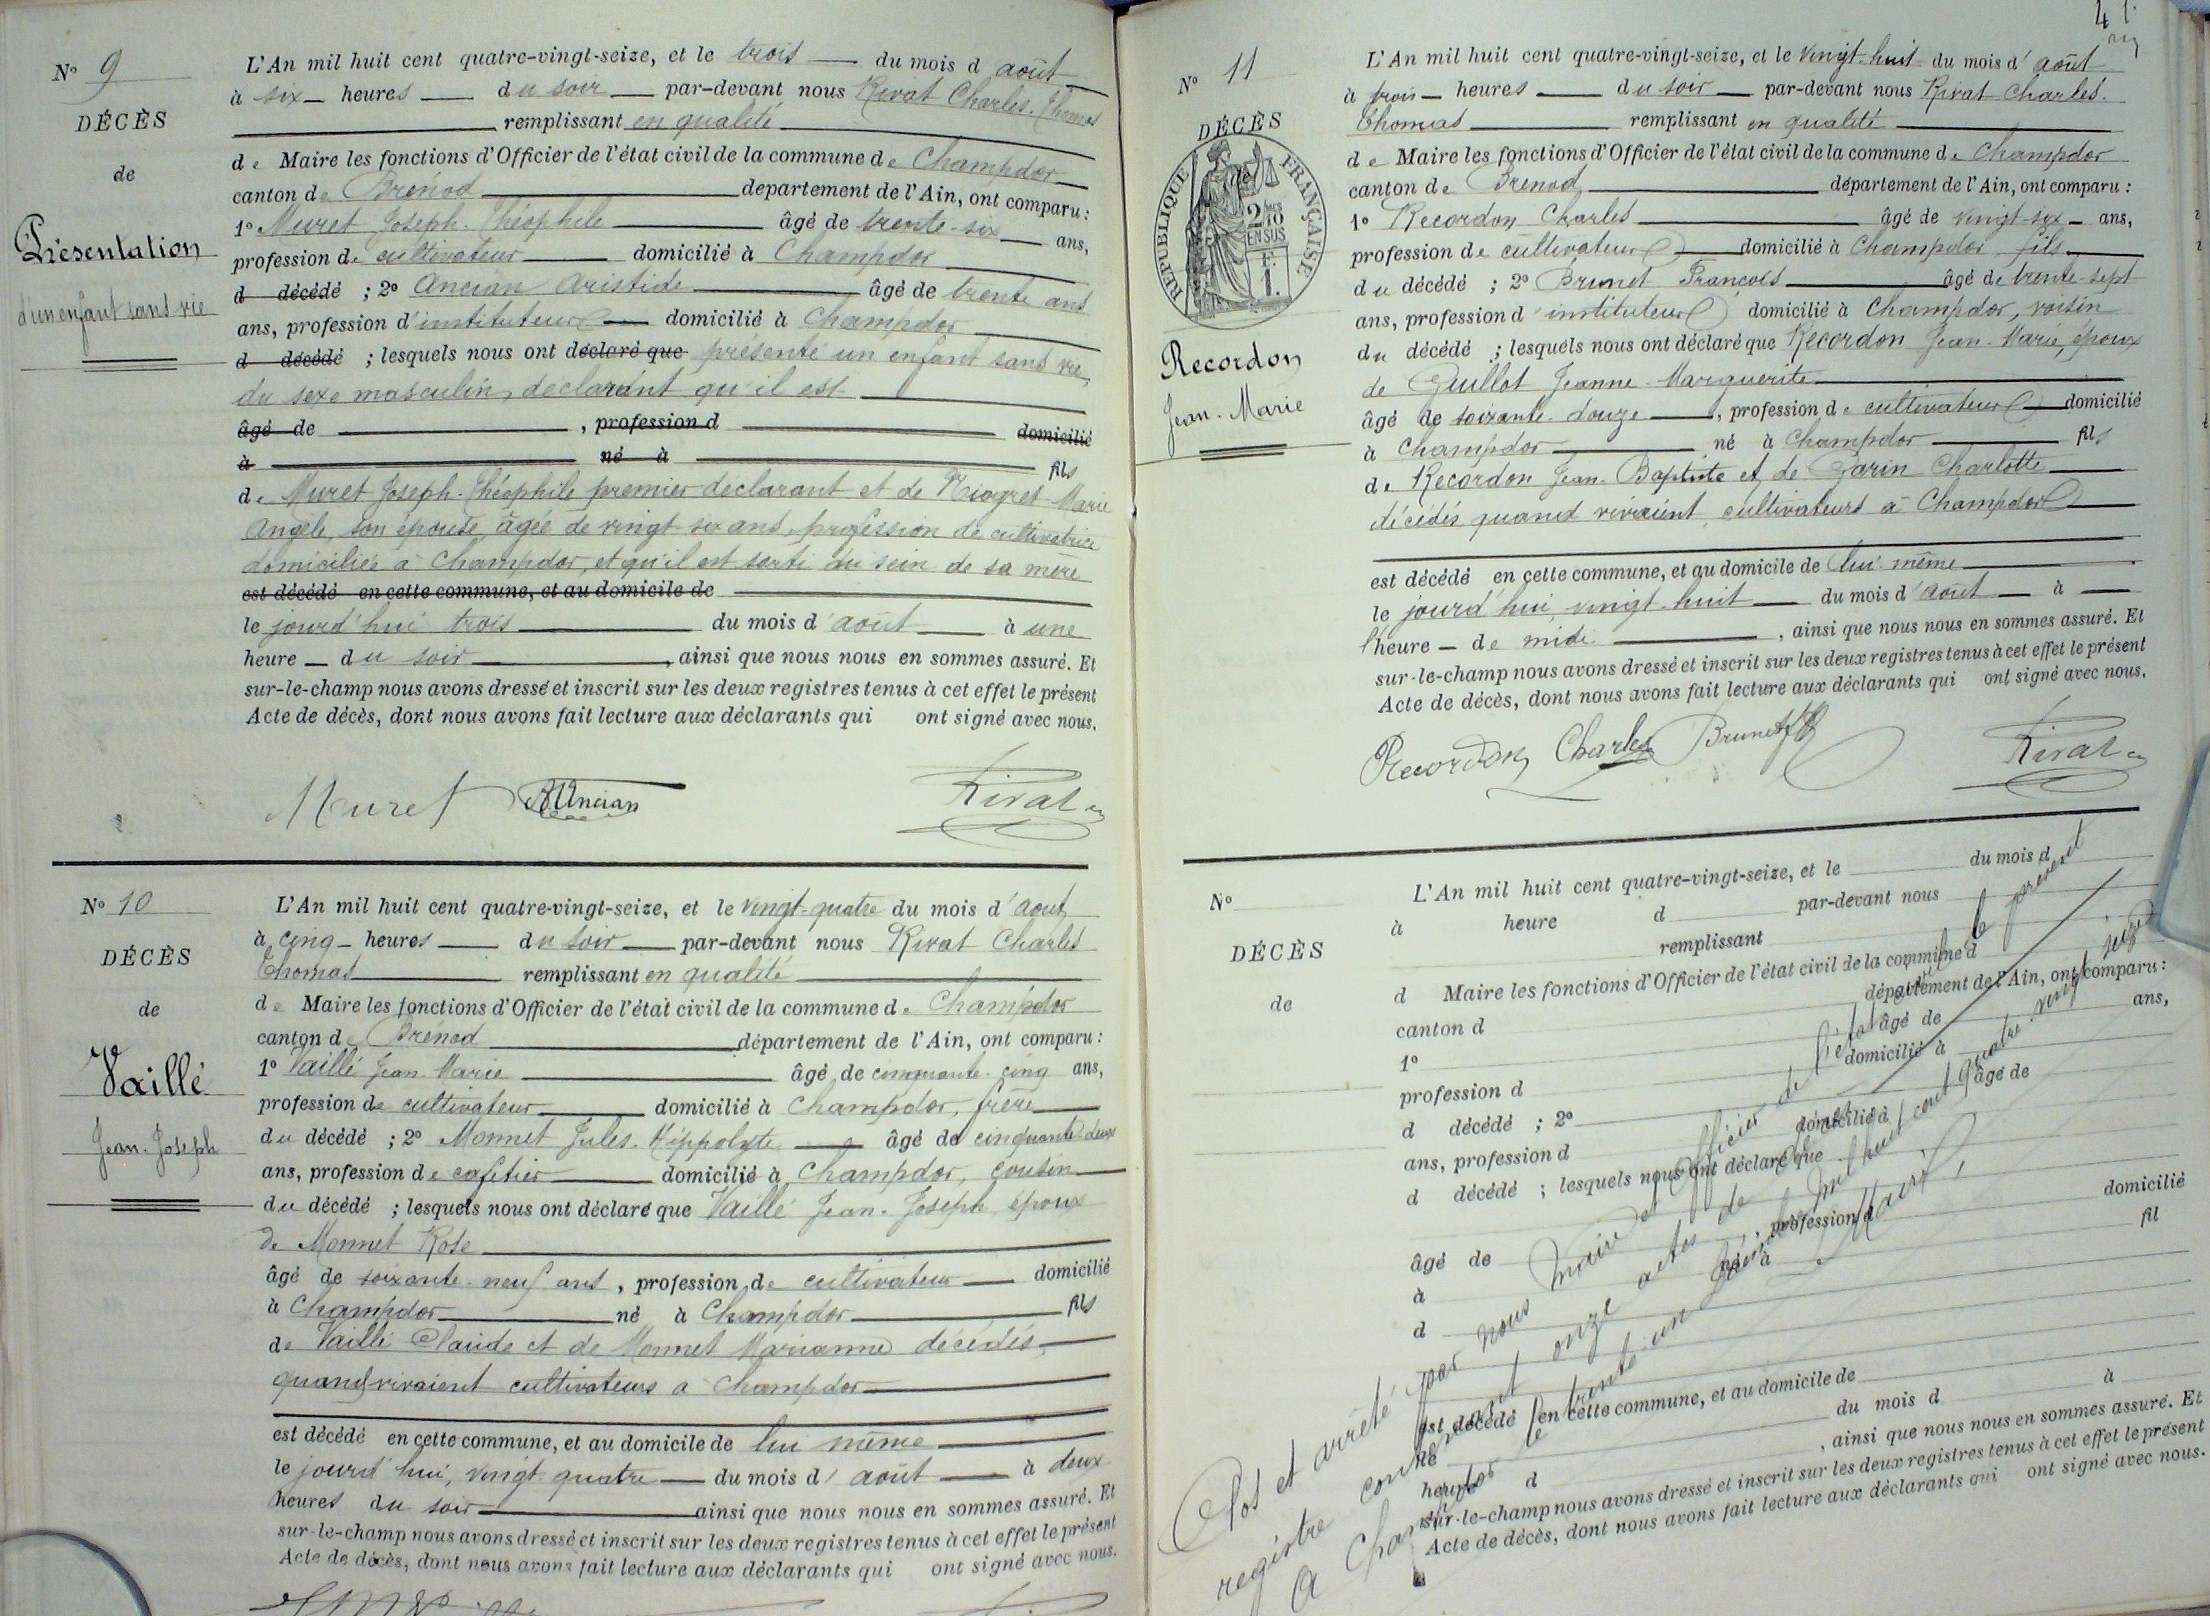 N° 9
DÉCÈS
de
Présentation
d'un enfant sans vie
L'An mil huit cent quatre-vingt-seize, et le trois du mois d août
à six heures du soir par-devant nous Rivat Charles Thomas
remplissant en qualité
de Maire les fonctions d'Officier de l'état civil de la commune de Champdor
canton de Brénod département de l'Ain, ont comparu :
1° Muret Joseph Théophile âgé de trente-six ans,
profession de cultivateur domicilié à Champdor
d décédé ; 2° Ancian Aristide âgé de trente ans
ans, profession d'instituteur domicilié à Champdor
d décédé ; lesquels nous ont déclaré que présenté un enfant sans vie,
du sexe masculin, déclarant qu'il est
âgé de , profession d domicilié
à né à fils
de Muret Joseph-Théophile premier déclarant et de Niogret Marie
Angèle, son épouse, âgée de vingt-six ans, profession de cultivatrice
domiciliée à Champdor, et qu'il est sorti du sein de sa mère
est décédé en cette commune, et au domicile de
le jourd'hui trois du mois d'août à une
heure du soir , ainsi que nous nous en sommes assuré. Et
sur-le-champ nous avons dressé et inscrit sur les deux registres tenus à cet effet le présent
Acte de décès, dont nous avons fait lecture aux déclarants qui ont signé avec nous.
Muret A Ancian Rivat
N° 10
DÉCÈS
de
Vaillé
Jean-Joseph
L'An mil huit cent quatre-vingt-seize, et le vingt-quatre du mois d'août
à cinq heures du soir par-devant nous Rivat Charles
Thomas remplissant en qualité
de Maire les fonctions d'Officier de l'état civil de la commune de Champdor
canton de Brénod département de l'Ain, ont comparu :
1° Vaillé Jean-Marie âgé de cinquante-cinq ans,
profession de cultivateur domicilié à Champdor, frère
du décédé ; 2° Monnet Jules-Hippolyte âgé de cinquante-deux
ans, profession de cafetier domicilié à Champdor, cousin
du décédé ; lesquels nous ont déclaré que Vaillé Jean-Joseph, époux
de Monnet Rose
âgé de soixante-neuf ans, profession de cultivateur domicilié
à Champdor né à Champdor fils
de Vaillé Claude et de Monnet Marianne décédés,
quand vivaient cultivateurs à Champdor
est décédé en cette commune, et au domicile de lui même
le jourd'hui, vingt-quatre du mois d'août à deux
heures du soir ainsi que nous nous en sommes assuré. Et
sur-le-champ nous avons dressé et inscrit sur les deux registres tenus à cet effet le présent
Acte de décès, dont nous avons fait lecture aux déclarants qui ont signé avec nous.
41
N° 11
DÉCÈS
RÉPUBLIQUE FRANÇAISE
2/10 EN SUS
F.
1.
Recordon
Jean-Marie
L'An mil huit cent quatre-vingt-seize, et le vingt-huit du mois d'août
à trois heures du soir par-devant nous Rivat Charles-
Thomas remplissant en qualité
de Maire les fonctions d'Officier de l'état civil de la commune de Champdor
canton de Brénod département de l'Ain, ont comparu :
1° Recordon Charles âgé de vingt-six ans,
profession de cultivateur domicilié à Champdor fils
du décédé ; 2° Brunet François âgé de trente-sept
ans, profession d'instituteur domicilié à Champdor, voisin
du décédé ; lesquels nous ont déclaré que Recordon Jean-Marie, époux
de Guillot Jeanne-Marguerite
âgé de soixante-douze , profession de cultivateur domicilié
à Champdor né à Champdor fils
de Recordon Jean-Baptiste et de Garin Charlotte
décédés quand vivaient cultivateurs à Champdor
est décédé en cette commune, et au domicile de lui-même
le jourd'hui, vingt-huit du mois d'août à
l'heure de midi , ainsi que nous nous en sommes assuré. Et
sur-le-champ nous avons dressé et inscrit sur les deux registres tenus à cet effet le présent
Acte de décès, dont nous avons fait lecture aux déclarants qui ont signé avec nous.
Recordon Charles Brunet Rivat
N°
DÉCÈS
de
L'An mil huit cent quatre-vingt-seize, et le du mois d
à heure d par-devant nous
remplissant
d Maire les fonctions d'Officier de l'état civil de la commune d
canton d département de l'Ain, ont comparu :
1° âgé de ans,
profession d domicilié à
d décédé ; 2° âgé de
ans, profession d domicilié à
d décédé ; lesquels nous ont déclaré que
âgé de , profession d domicilié
à né à fil
d
est décédé en cette commune, et au domicile de
le du mois d à
heure d , ainsi que nous nous en sommes assuré. Et
sur-le-champ nous avons dressé et inscrit sur les deux registres tenus à cet effet le présent
Acte de décès, dont nous avons fait lecture aux déclarants qui ont signé avec nous.
Clos et arrêté par nous Maire et officier de l'état civil le présent
registre contenant onze actes de décès
à Champdor le trente-un décembre mil huit cent quatre-vingt-seize
Le Maire,